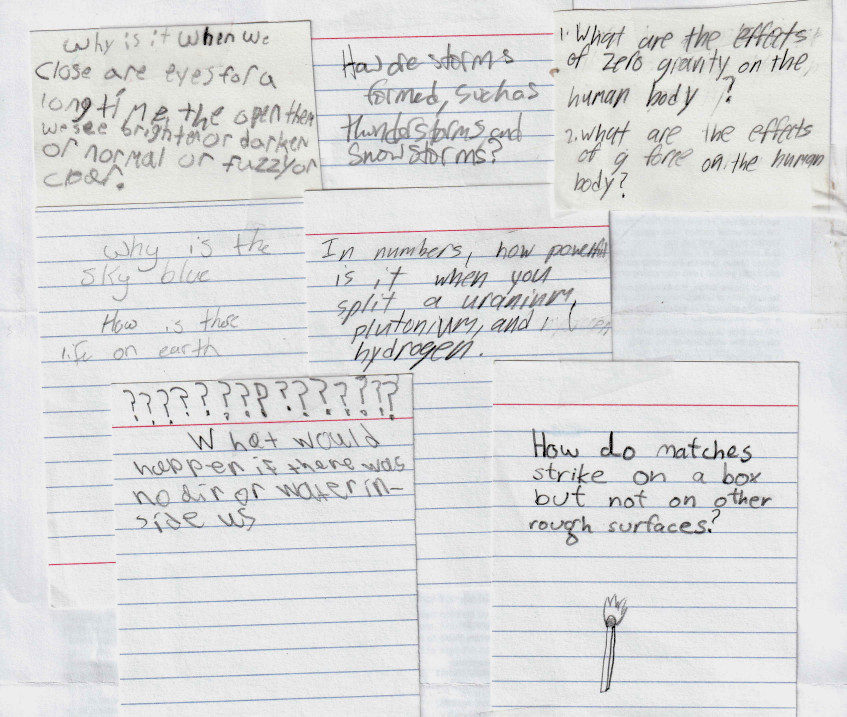 why is it when we
Close are eyes for a
long time the open them
we see brighter or darker
or normal or fuzzy or
clear.
How are storms
formed, such as
thunderstorms and
snowstorms?
1. What are the effects
of zero gravity on the
human body?
2. what are the effects
of g force on the human
body?
Why is the
sky blue
How is there
life on earth
In numbers, how powerful
is it when you
split a uranium,
plutonium, and
hydrogen.
? ? ? ? ? ? ? ? ? ? ? ? ? ? ?
What would
happen if there was
no air or watter in-
side us
How do matches
strike on a box
but not on other
rough surfaces?